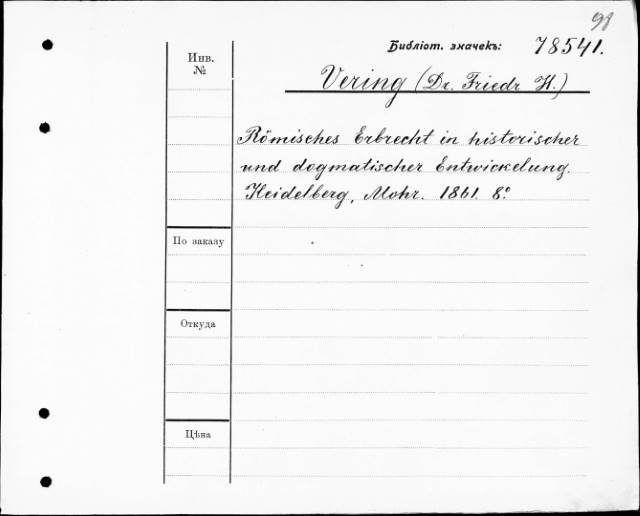 98
Библіот. значекъ: 78541.
Инв.
№
Vering (Dr. Friedr H.)
Römisches Erbrecht in historischer
und dogmatischer Entwickelung.
Heidelberg, Mohr. 1861. 8º.
По заказу
Откуда
Цѣна